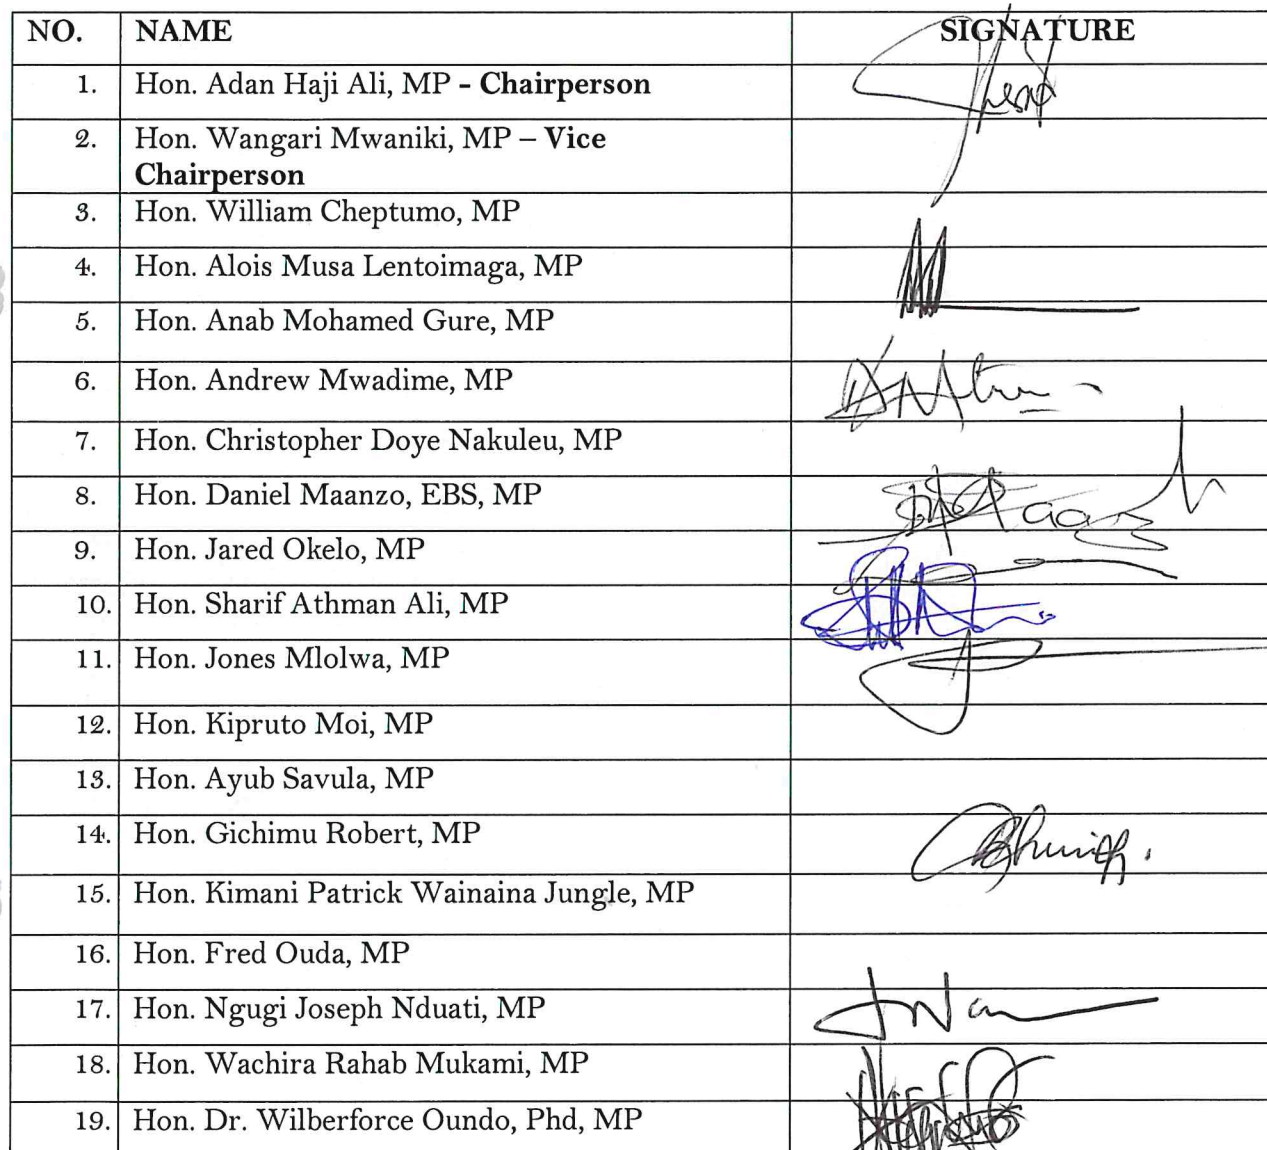 NO. NAME SIGNATURE
1. Hon. Adan Haji Ali, MP - Chairperson
2. Hon. Wangari Mwaniki, MP – Vice
Chairperson
3. Hon. William Cheptumo, MP
4. Hon. Alois Musa Lentoimaga, MP
5. Hon. Anab Mohamed Gure, MP
6. Hon. Andrew Mwadime, MP
7. Hon. Christopher Doye Nakuleu, MP
8. Hon. Daniel Maanzo, EBS, MP
9. Hon. Jared Okelo, MP
10. Hon. Sharif Athman Ali, MP
11. Hon. Jones Mlolwa, MP
12. Hon. Kipruto Moi, MP
13. Hon. Ayub Savula, MP
14. Hon. Gichimu Robert, MP
15. Hon. Kimani Patrick Wainaina Jungle, MP
16. Hon. Fred Ouda, MP
17. Hon. Ngugi Joseph Nduati, MP
18. Hon. Wachira Rahab Mukami, MP
19. Hon. Dr. Wilberforce Oundo, Phd, MP